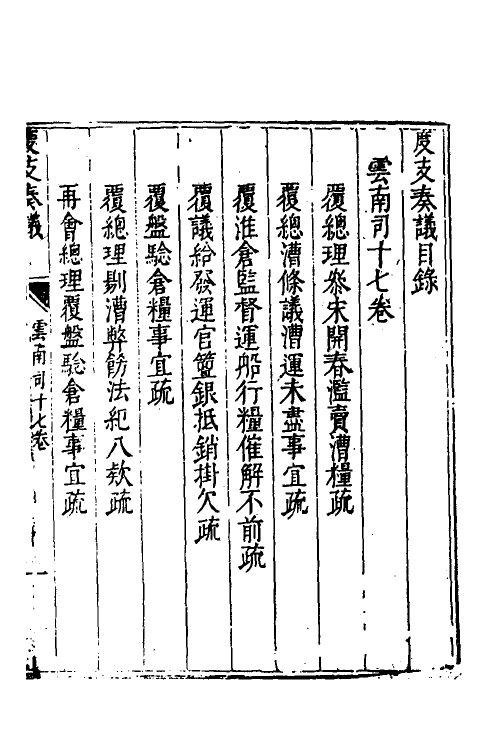 度支奏議目錄
雲南司十七卷
覆總理叅宋開春濫賣漕糧疏
覆總漕條議漕運未盡事宜疏
覆淮倉監督運船行糧催解不前疏
覆議給發運官簹銀抵銷掛欠疏
覆盤驗倉糧事宜疏
覆總理剔漕弊飭法紀八欵疏
再會總理覆盤驗倉糧事宜疏
度支奏議
雲南司十七卷